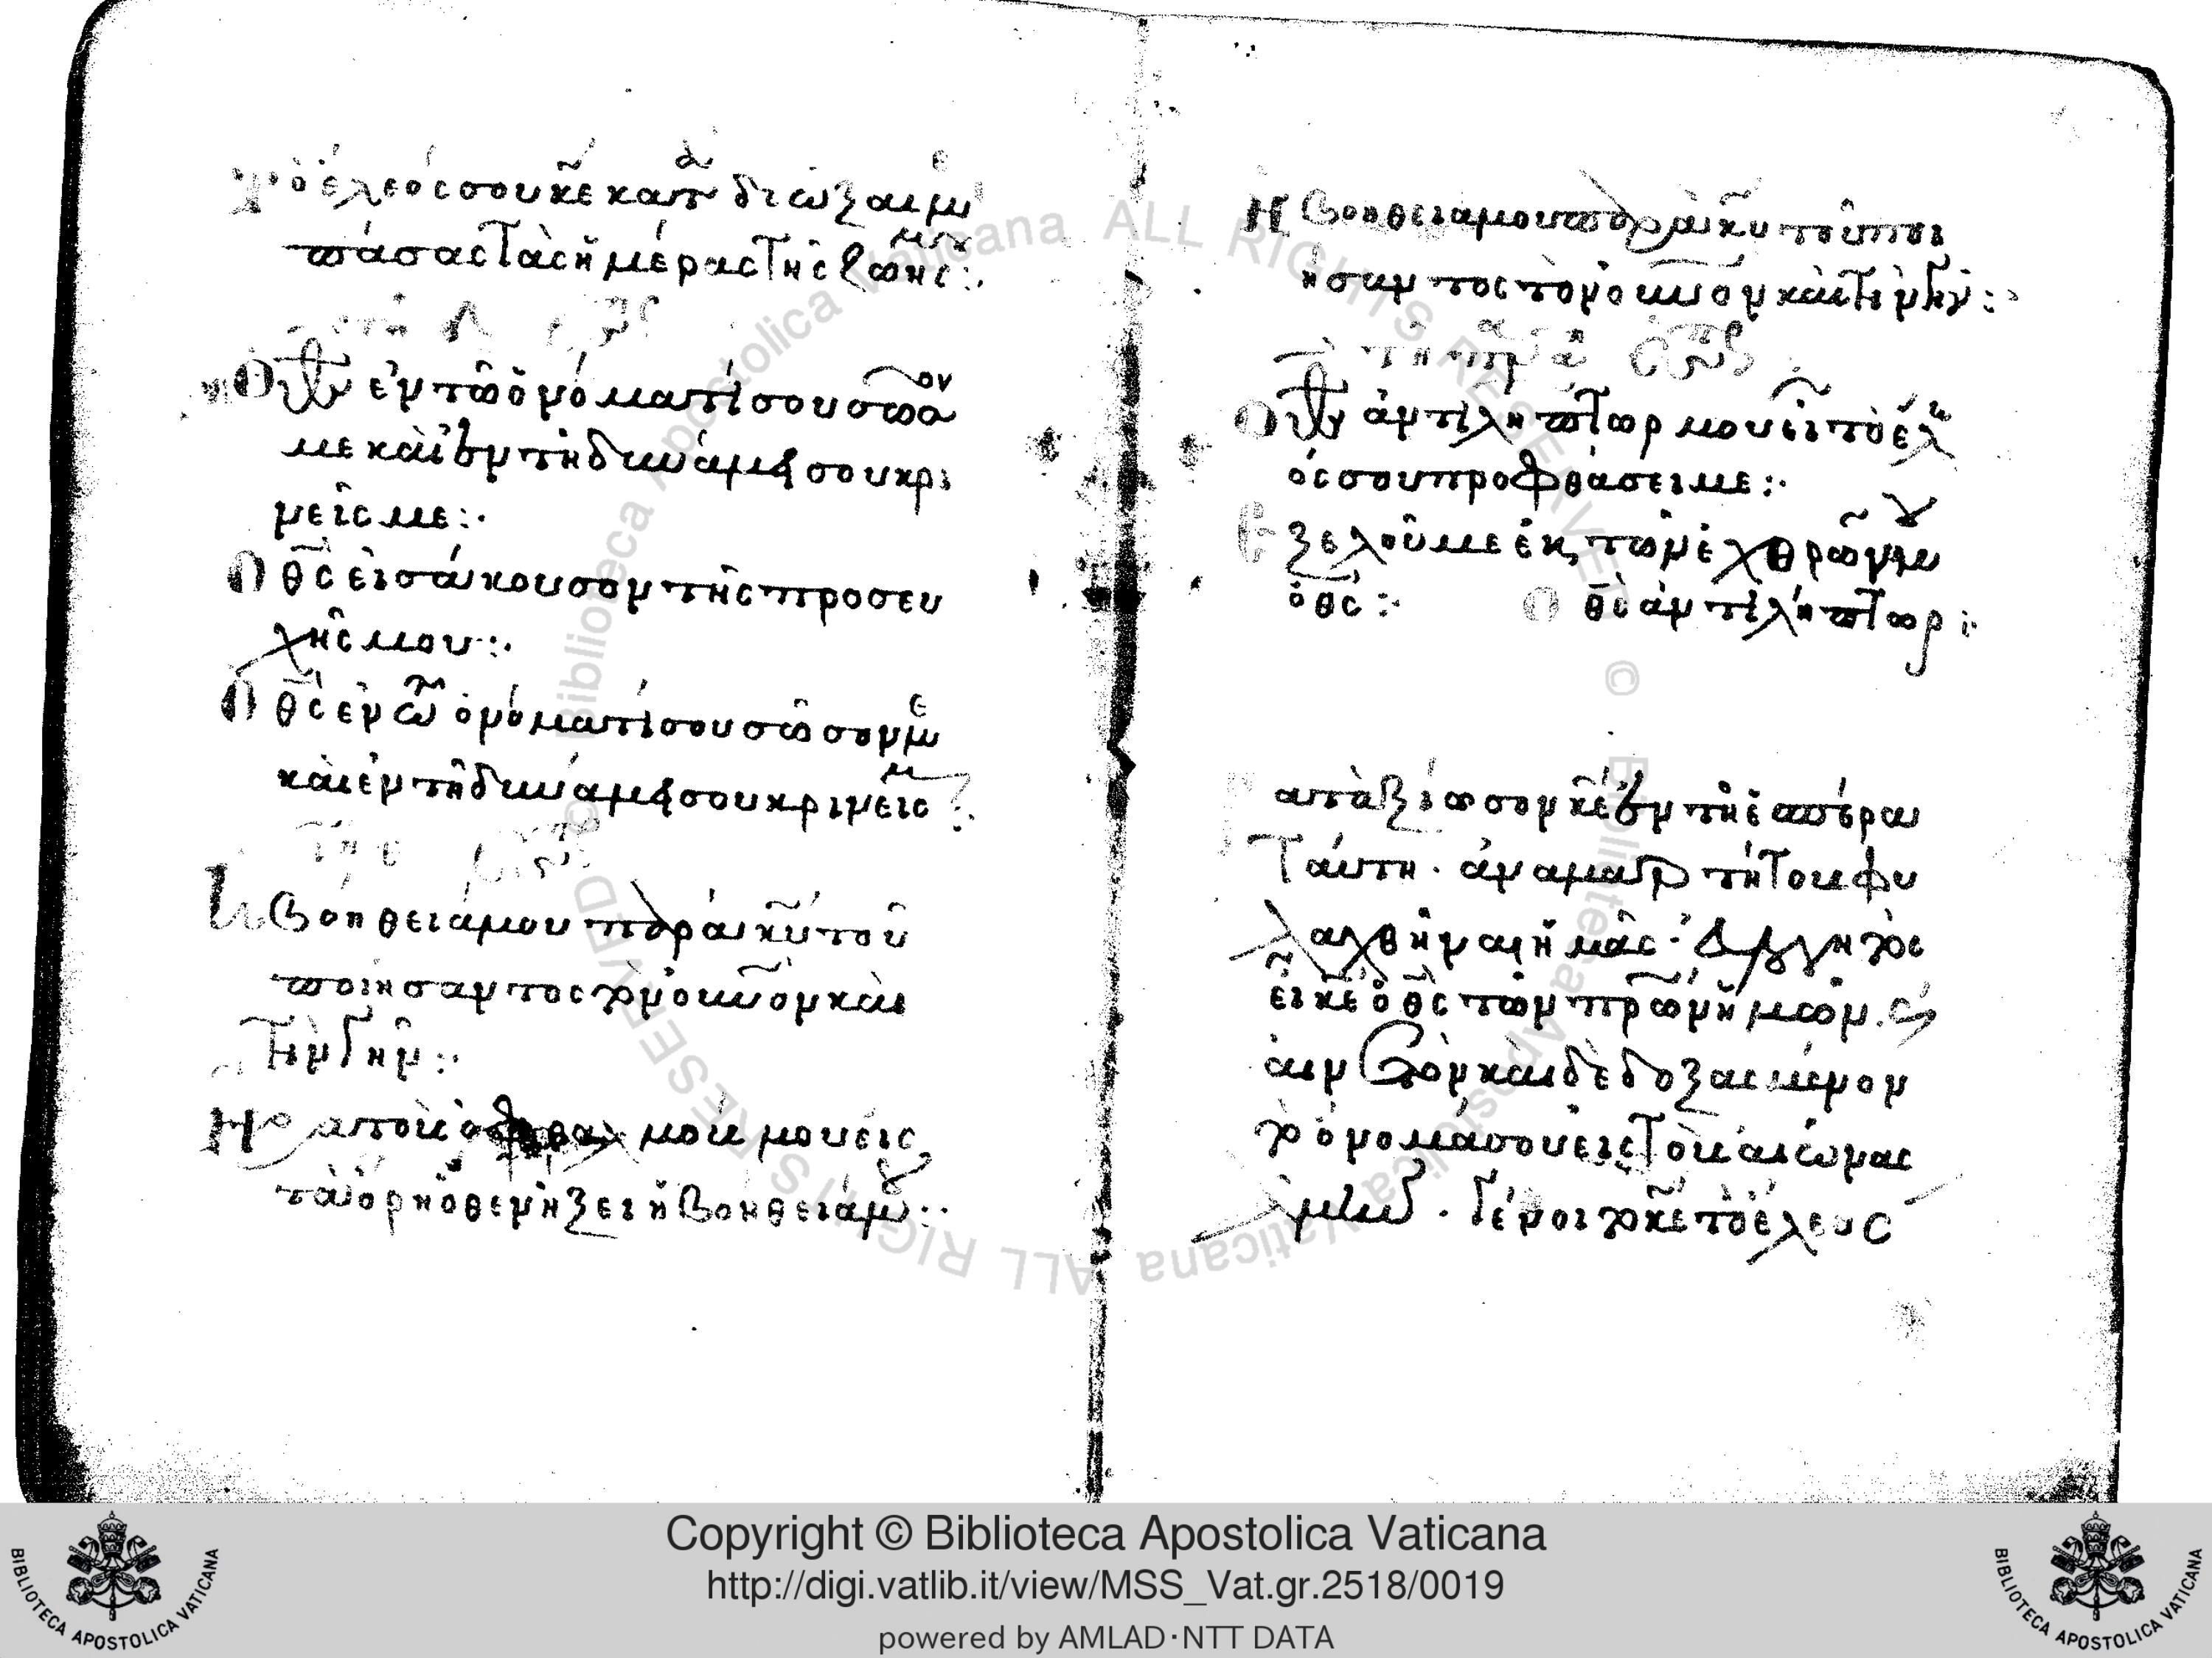 τὸ ἔλεός σου κε καταδιώξει με
πάσας τὰς ἡμέρας τῆς ζωῆς μου:
ὁ θς ἐν τῶ ὀνόματί σου σῶσον
με καὶ ἐν τῆ δυνάμει σου κρι
νεῖς με:
Ὁ θς εἰσάκουσον τῆς προσευ
χῆς μου:
Ὁ θς ἐν τῶ ὀνόματί σου σῶσον με
καὶ ἐν τῆ δυνάμει σου κρινεῖς μ
Ἡ βοήθειά μου παρὰ κυ τοῦ
ποιήσαντος τὸν οὐνον καὶ
τὴν γῆν:
Ἦρα τοὺς ὀφθαλμούς μου εἰς
τὰ ὄρη ὅθεν ἥξει ἡ βοήθειά μου:
Ἡ βοήθειά μου παρὰ κυ τοῦ ποι
ήσαντος τὸν οὐνον καὶ τὴν γῆν:
Ὁ θς ἀντιλήπτωρ μου εἶ τὸ ἔλε
ός σου προφθάσει με:
Ἐξελοῦ με ἐκ τῶν ἐχθρῶν μου
ὁ θς: Ὁ θς ἀντιλήπτωρ:
Καταξίωσον κε ἐν τῆ ἑσπέρα
ταύτη. ἀναμαρτήτους φυ
λαχθῆναι ἡμᾶς. εὐλογητὸς
εἶ κε ὁ θς τῶν πρων ἡμῶν. καὶ
αἰνετὸν καὶ δεδοξασμένον
τὸ ὄνομά σου εἰς τοὺς αἰῶνας
ἀμήν. Γένοιτο κε τὸ ἔλεος
Copyright © Biblioteca Apostolica Vaticana
http://digi.vatlib.it/view/MSS_Vat.gr.2518/0019
powered by AMLAD·NTT DATA